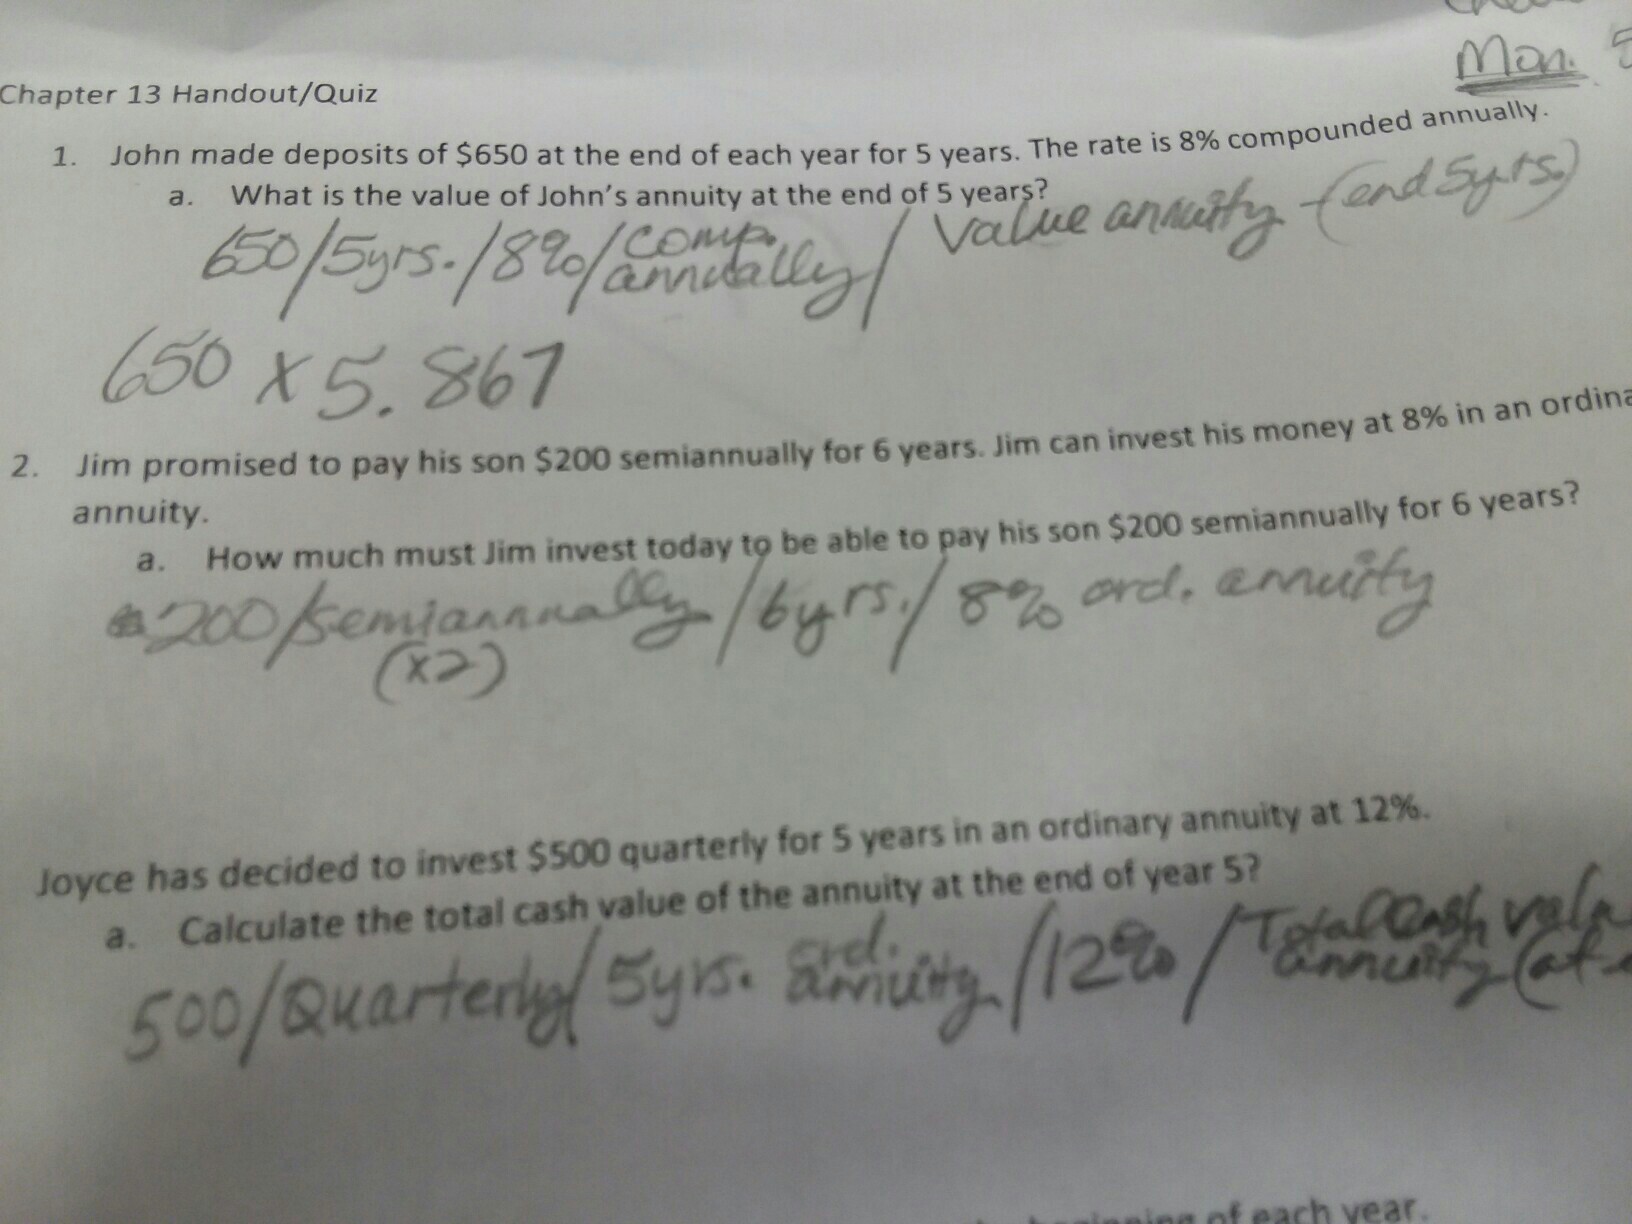 Mon.
Chapter 13 Handout/Quiz
1. John made deposits of $650 at the end of each year for 5 years. The rate is 8% compounded annually.
a. What is the value of John's annuity at the end of 5 years?
650/5yrs./8%/comp. annually/ Value annuity (end 5yrs.)
650 x 5.867
2. Jim promised to pay his son $200 semiannually for 6 years. Jim can invest his money at 8% in an
annuity.
a. How much must Jim invest today to be able to pay his son $200 semiannually for 6 years?
200/semiannually/6yrs./8% ord. annuity
(x2)
Joyce has decided to invest $500 quarterly for 5 years in an ordinary annuity at 12%.
a. Calculate the total cash value of the annuity at the end of year 5?
500/Quarterly/5yrs. ord. annuity/12%/Total Cash annuity (at
of each year.